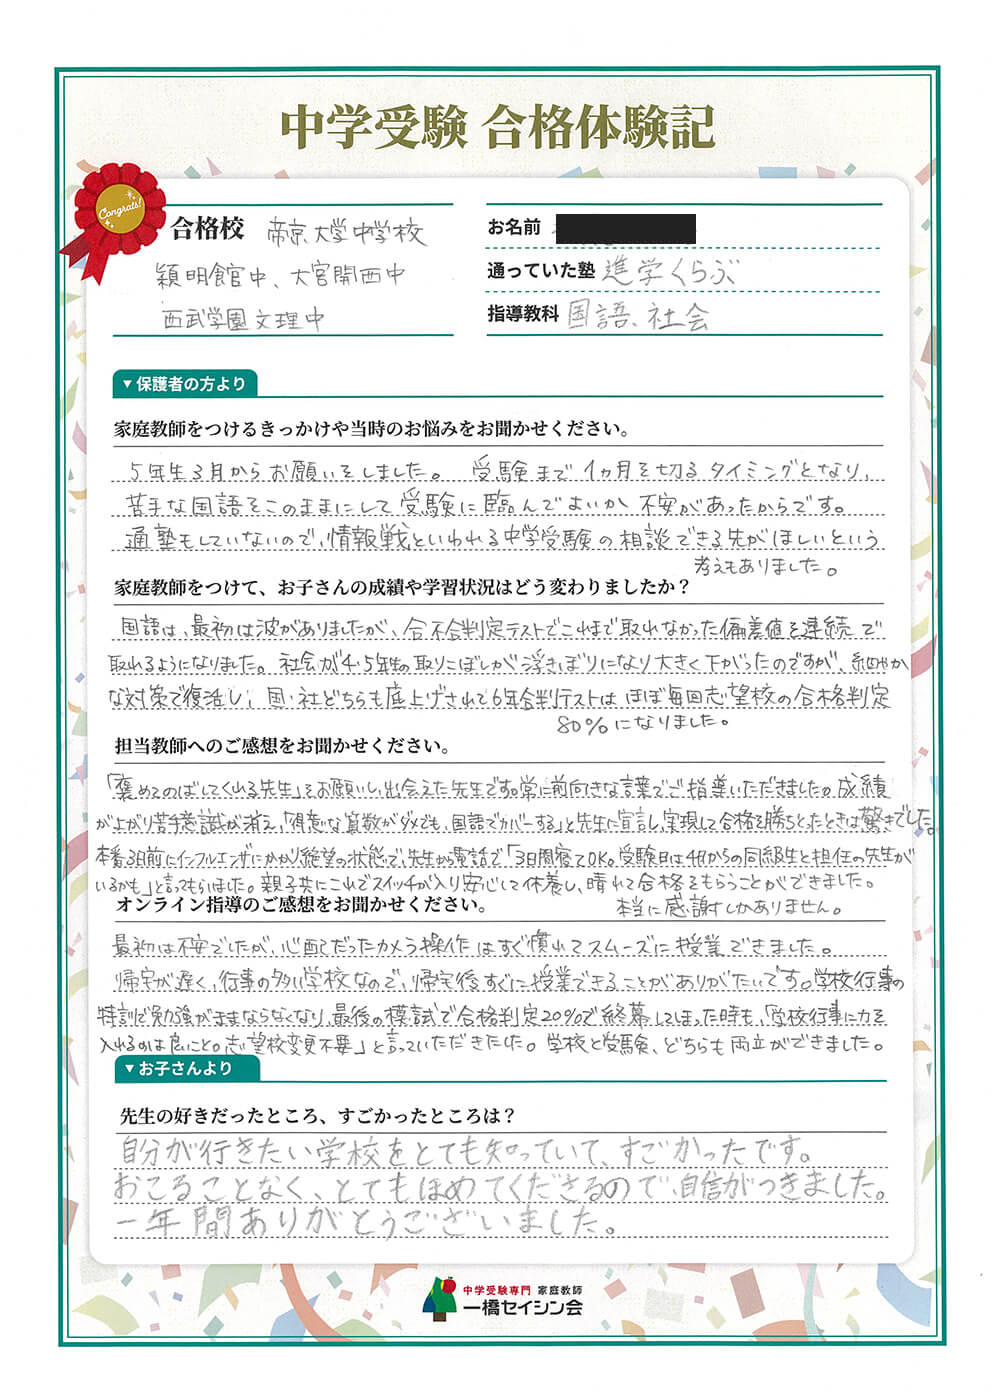 中学受験 合格体験記
Congrats!
合格校 帝京大学中学校
穎明館中、大宮開西中
西武学園文理中
お名前
通っていた塾 進学くらぶ
指導教科 国語、社会
▼保護者の方より
家庭教師をつけるきっかけや当時のお悩みをお聞かせください。
5年生3月からお願いをしました。 受験まで1ヵ月を切るタイミングとなり、
苦手な国語をこのままにして受験に臨んでよいか不安があったからです。
通塾もしていないので、情報戦といわれる中学受験の相談できる先がほしいという
考えもありました。
家庭教師をつけて、お子さんの成績や学習状況はどう変わりましたか？
国語は、最初は波がありましたが、合不合判定テストでこれまで取れなかった偏差値を連続で
取れるようになりました。社会が4・5年生の取りこぼしが浮きぼりになり大きく下がったのですが、細やか
な対策で復活し、国・社どちらも底上げされて6年合判テストはほぼ毎回志望校の合格判定
80%になりました。
担当教師へのご感想をお聞かせください。
「褒めてのばしてくれる先生」をお願いし、出会えた先生です。常に前向きな言葉でご指導いただきました。成績
が上がり苦手意識が消え、「得意な算数がダメでも、国語でカバーする」と先生に宣言し、実現して合格を勝ちとったときは驚きでした。
本番3日前にインフルエンザにかかり絶望の状態で、先生から電話で「3日間寝てOK。受験日は4月からの同級生と担任の先生が
いるかも」と言ってもらいました。親子共にこれでスイッチが入り安心して休養し、晴れて合格をもらうことができました。
本当に感謝しかありません。
オンライン指導のご感想をお聞かせください。
最初は不安でしたが、心配だったカメラ操作はすぐ慣れてスムーズに授業できました。
帰宅が遅く、行事の多い学校なので、帰宅後すぐに授業できることがありがたいです。学校行事の
特訓で勉強がままならなくなり、最後の模試で合格判定20%で終幕してしまった時も、「学校行事に力を
入れるのは良いこと。志望校変更不要」と言っていただきました。学校と受験、どちらも両立ができました。
▼お子さんより
先生の好きだったところ、すごかったところは？
自分が行きたい学校をとても知っていて、すごかったです。
おこることなく、とてもほめてくださるので、自信がつきました。
一年間ありがとうございました。
中学受験専門 家庭教師
一橋セイシン会